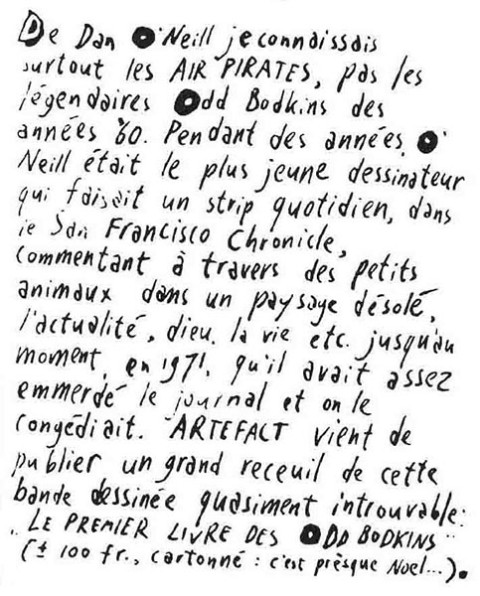 De Dan O'Neill je connaissais
surtout les AIR PIRATES, pas les
légendaires Odd Bodkins des
années '60. Pendant des années, O'
Neill était le plus jeune dessinateur
qui faisait un strip quotidien, dans
le San Francisco Chronicle,
commentant à travers des petits
animaux dans un paysage désolé,
l'actualité, dieu, la vie etc. jusqu'au
moment, en 1971, qu'il avait assez
emmerdé le journal et on le
congédiait. ARTEFACT vient de
publier un grand receuil de cette
bande dessinée quasiment introuvable:
"LE PREMIER LIVRE DES ODD BODKINS"
(± 100 fr., cartonné : c'est presque Noel...).